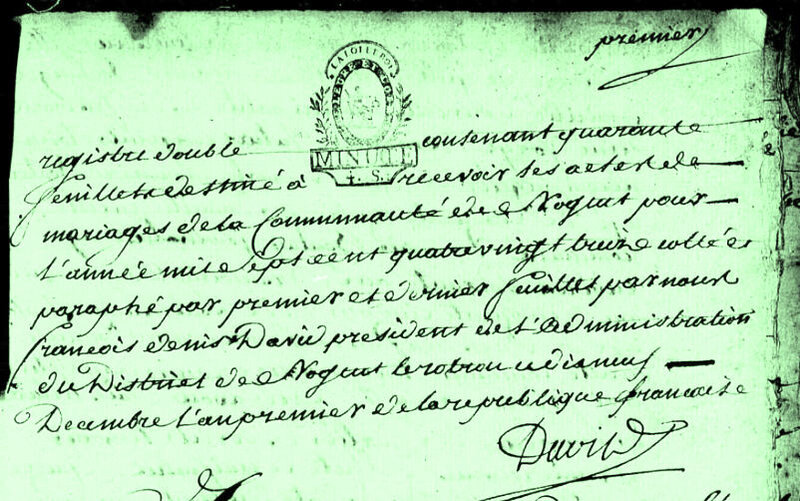 premier
LA LOI ET LE ROI
MINUTE
4. S.
registre double contenant quarante
feuillets destiné à recevoir les actes de
mariages de la Communauté de Nogent pour
l'année mil sept cent quatrevingt treize collé et
paraphé par premier et dernier feuillet par nous
françois denis David president de l'administration
du District de Nogent lerotrou ce dix neuf
Decembre l'an premier de la republique françoise
David